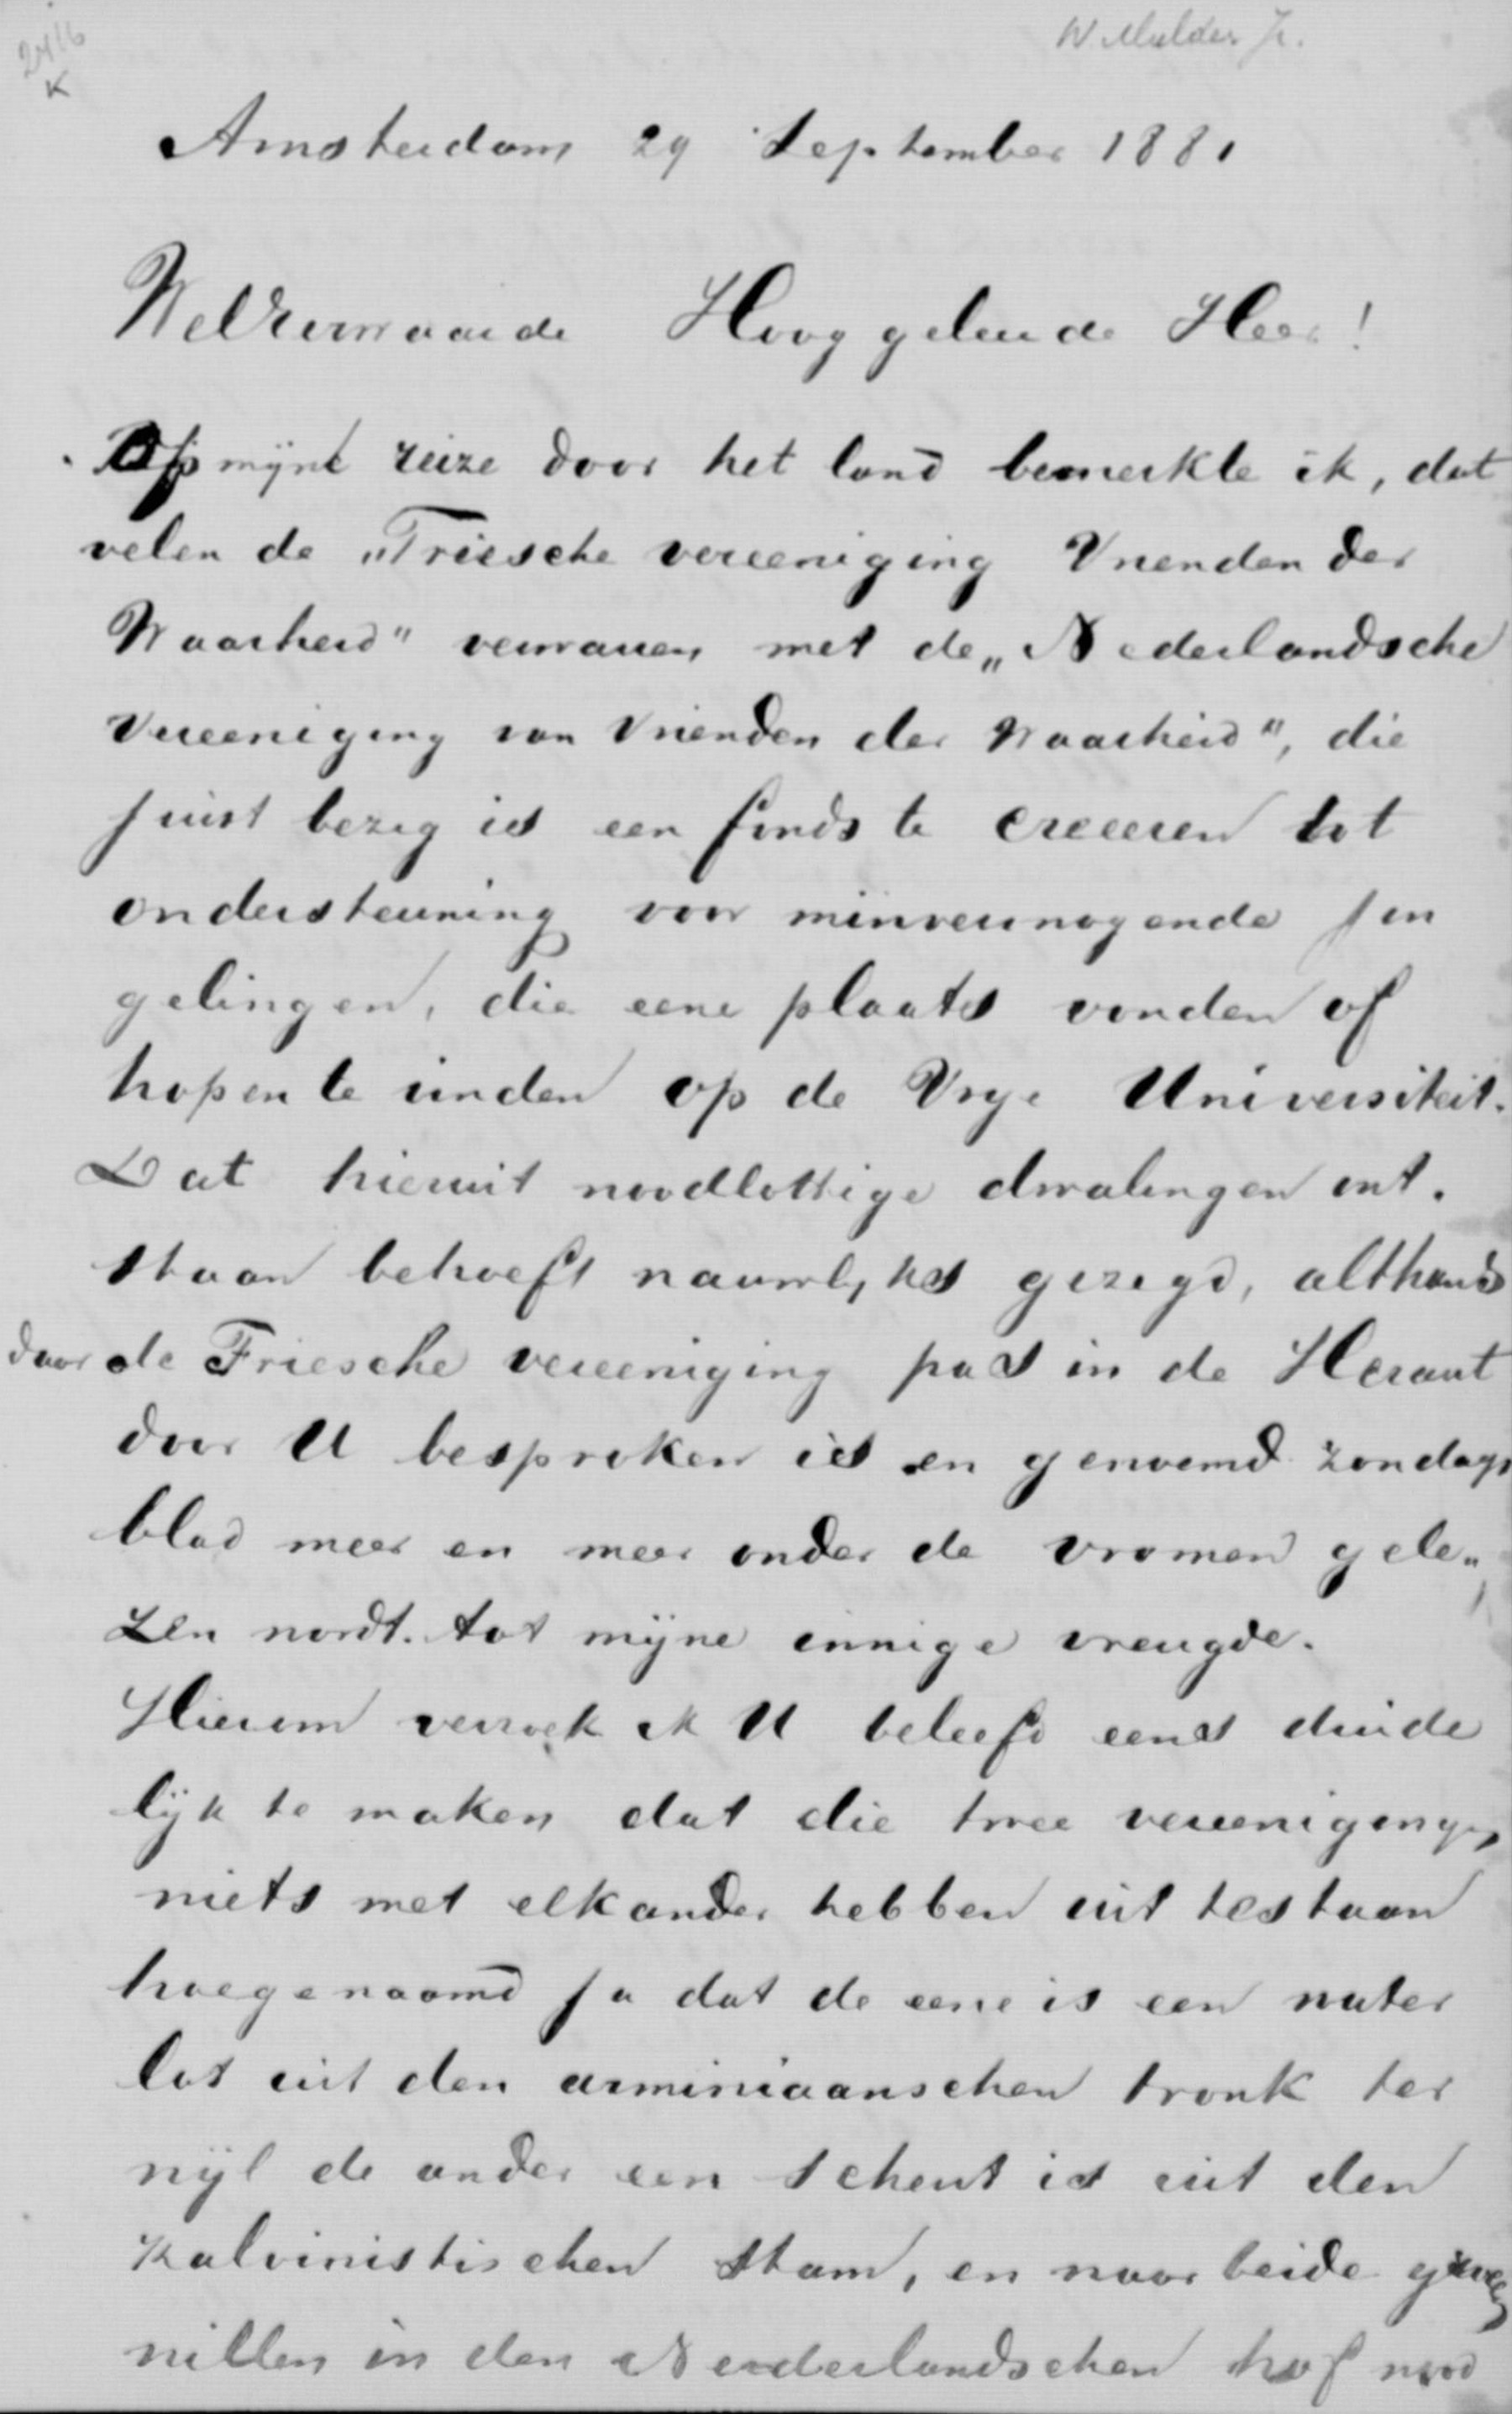 W Mulder Jr.
2416
K
Amsterdam 29 September 1881
WelEerwaarde Hooggeleerde Heer!
Op mijne reize door het land bemerkte ik, dat
velen de „Friesche vereeniging Vrienden der
Waarheid" verwarren met de „Nederlandsche
Vereeniging van Vrienden der Waarheid", die
juist bezig is een fonds te creeeren tot
ondersteuning voor minvermogende jon
gelingen, die eene plaats vonden of
hopen te vinden op de Vrye Universiteit.
Dat hieruit noodlottige dwalingen ont.
staan behoeft nauwlyks gezegd, althans
daar de Friesche vereeniging pas in de Heraut
door U besproken is en genoemd zondags
blad meer en meer onder de vromen gele„
zen wordt. tot mijne innige vreugde.
Hierom verzoek ik U beleefd eens duide
lijk te maken dat die twee vereenigingen
niets met elkander hebben uit testaan
hoegenaamd ja dat de eene is een water
lot uit den arminiaanschen tronk ter
wijl de ander een scheut is uit den
kalvinistischen stam, en waar beide
willen in den Nederlandschen hof